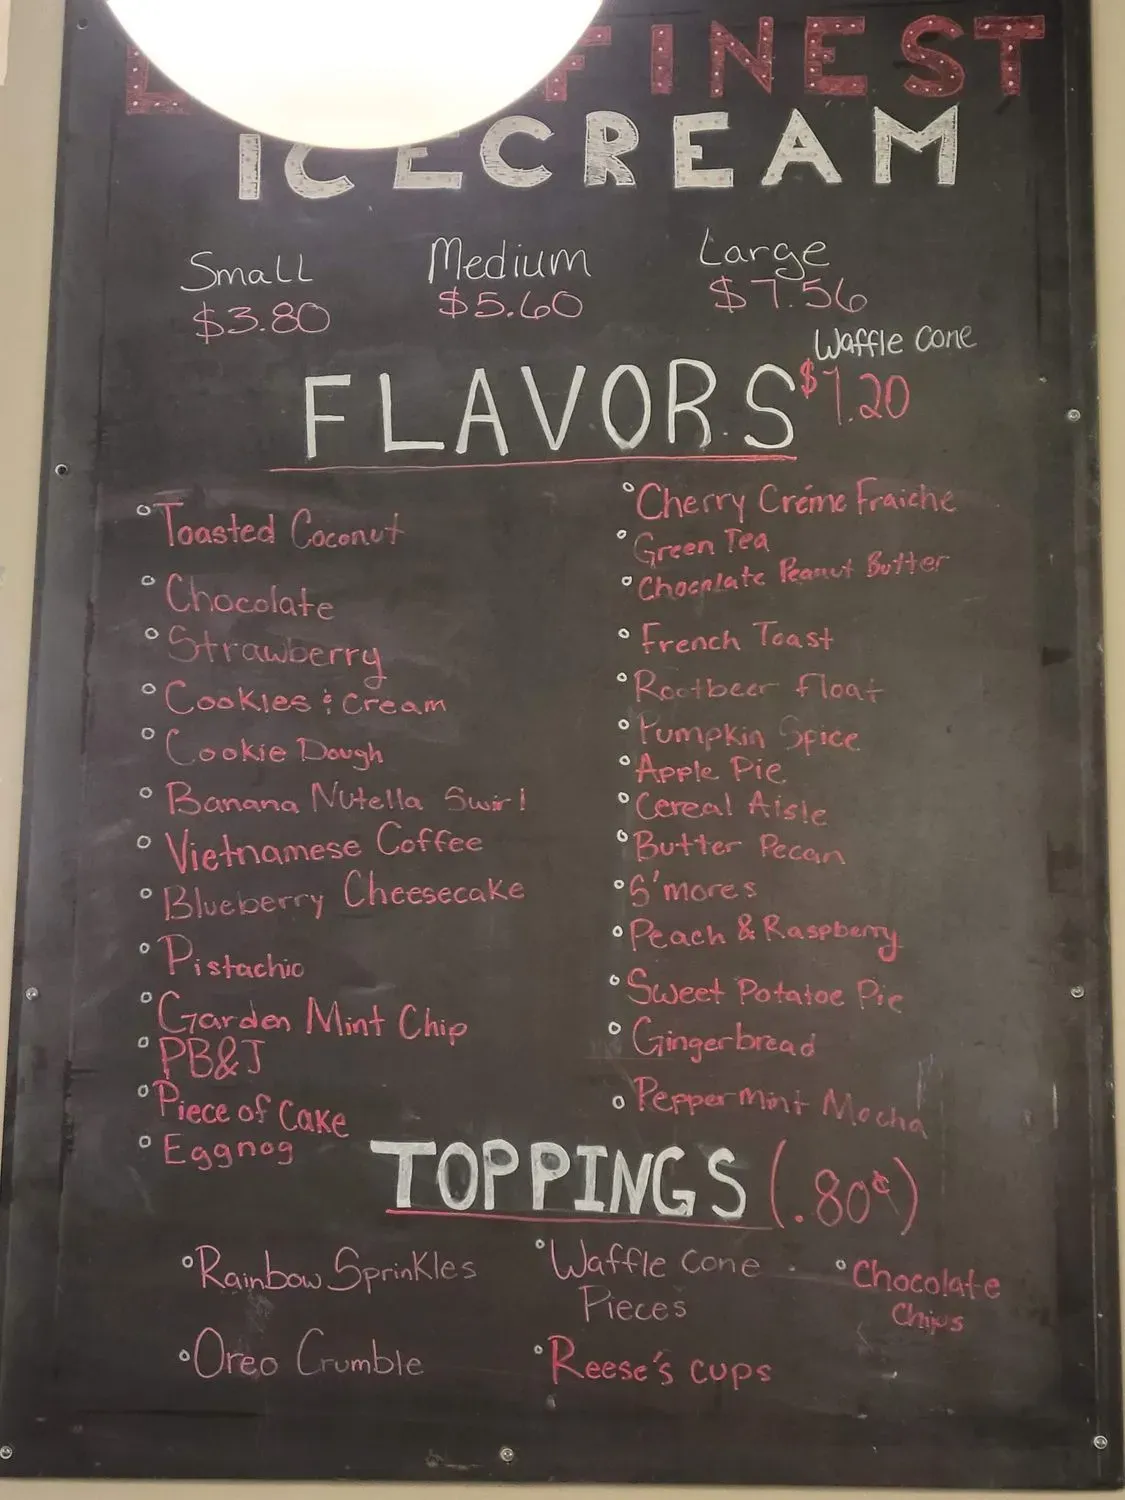 FINEST
ICECREAM
Small Medium Large
$3.80 $5.60 $7.56
Waffle Cone
$1.20
FLAVORS
Toasted Coconut
Chocolate
Strawberry
Cookies & Cream
Cookie Dough
Banana Nutella Swirl
Vietnamese Coffee
Blueberry Cheesecake
Pistachio
Garden Mint Chip
PB&J
Piece of Cake
Eggnog
Cherry Créme Fraiche
Green Tea
Chocolate Peanut Butter
French Toast
Rootbeer Float
Pumpkin Spice
Apple Pie
Cereal Aisle
Butter Pecan
S'mores
Peach & Raspberry
Sweet Potatoe Pie
Gingerbread
Peppermint Mocha
TOPPINGS (.80¢)
Rainbow Sprinkles
Oreo Crumble
Waffle Cone
Pieces
Reese's cups
Chocolate
Chips